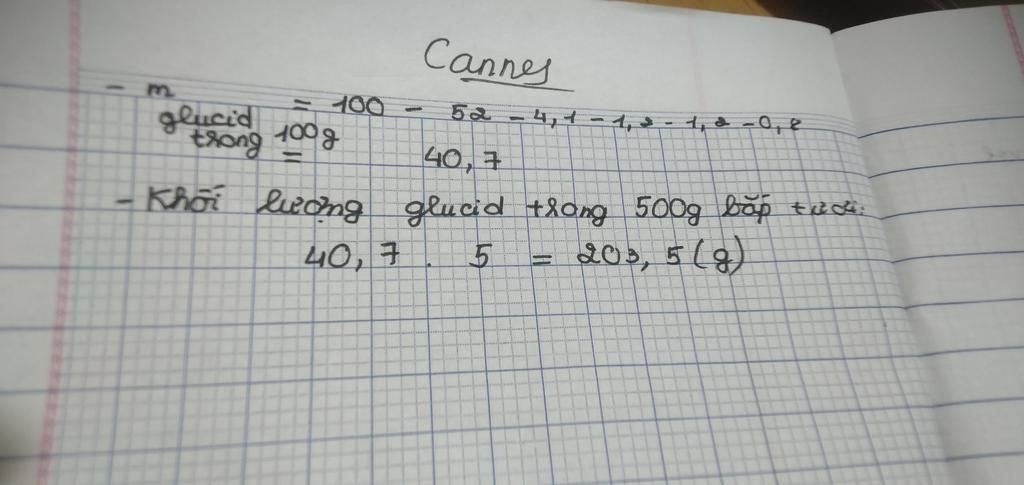 Cannes
- m glucid trong 100g = 100 - 52 - 4,1 - 1,2 - 1,2 - 0,8
= 40,7
- Khối lượng glucid trong 500g bắp tươi:
40,7 . 5 = 203,5 (g)